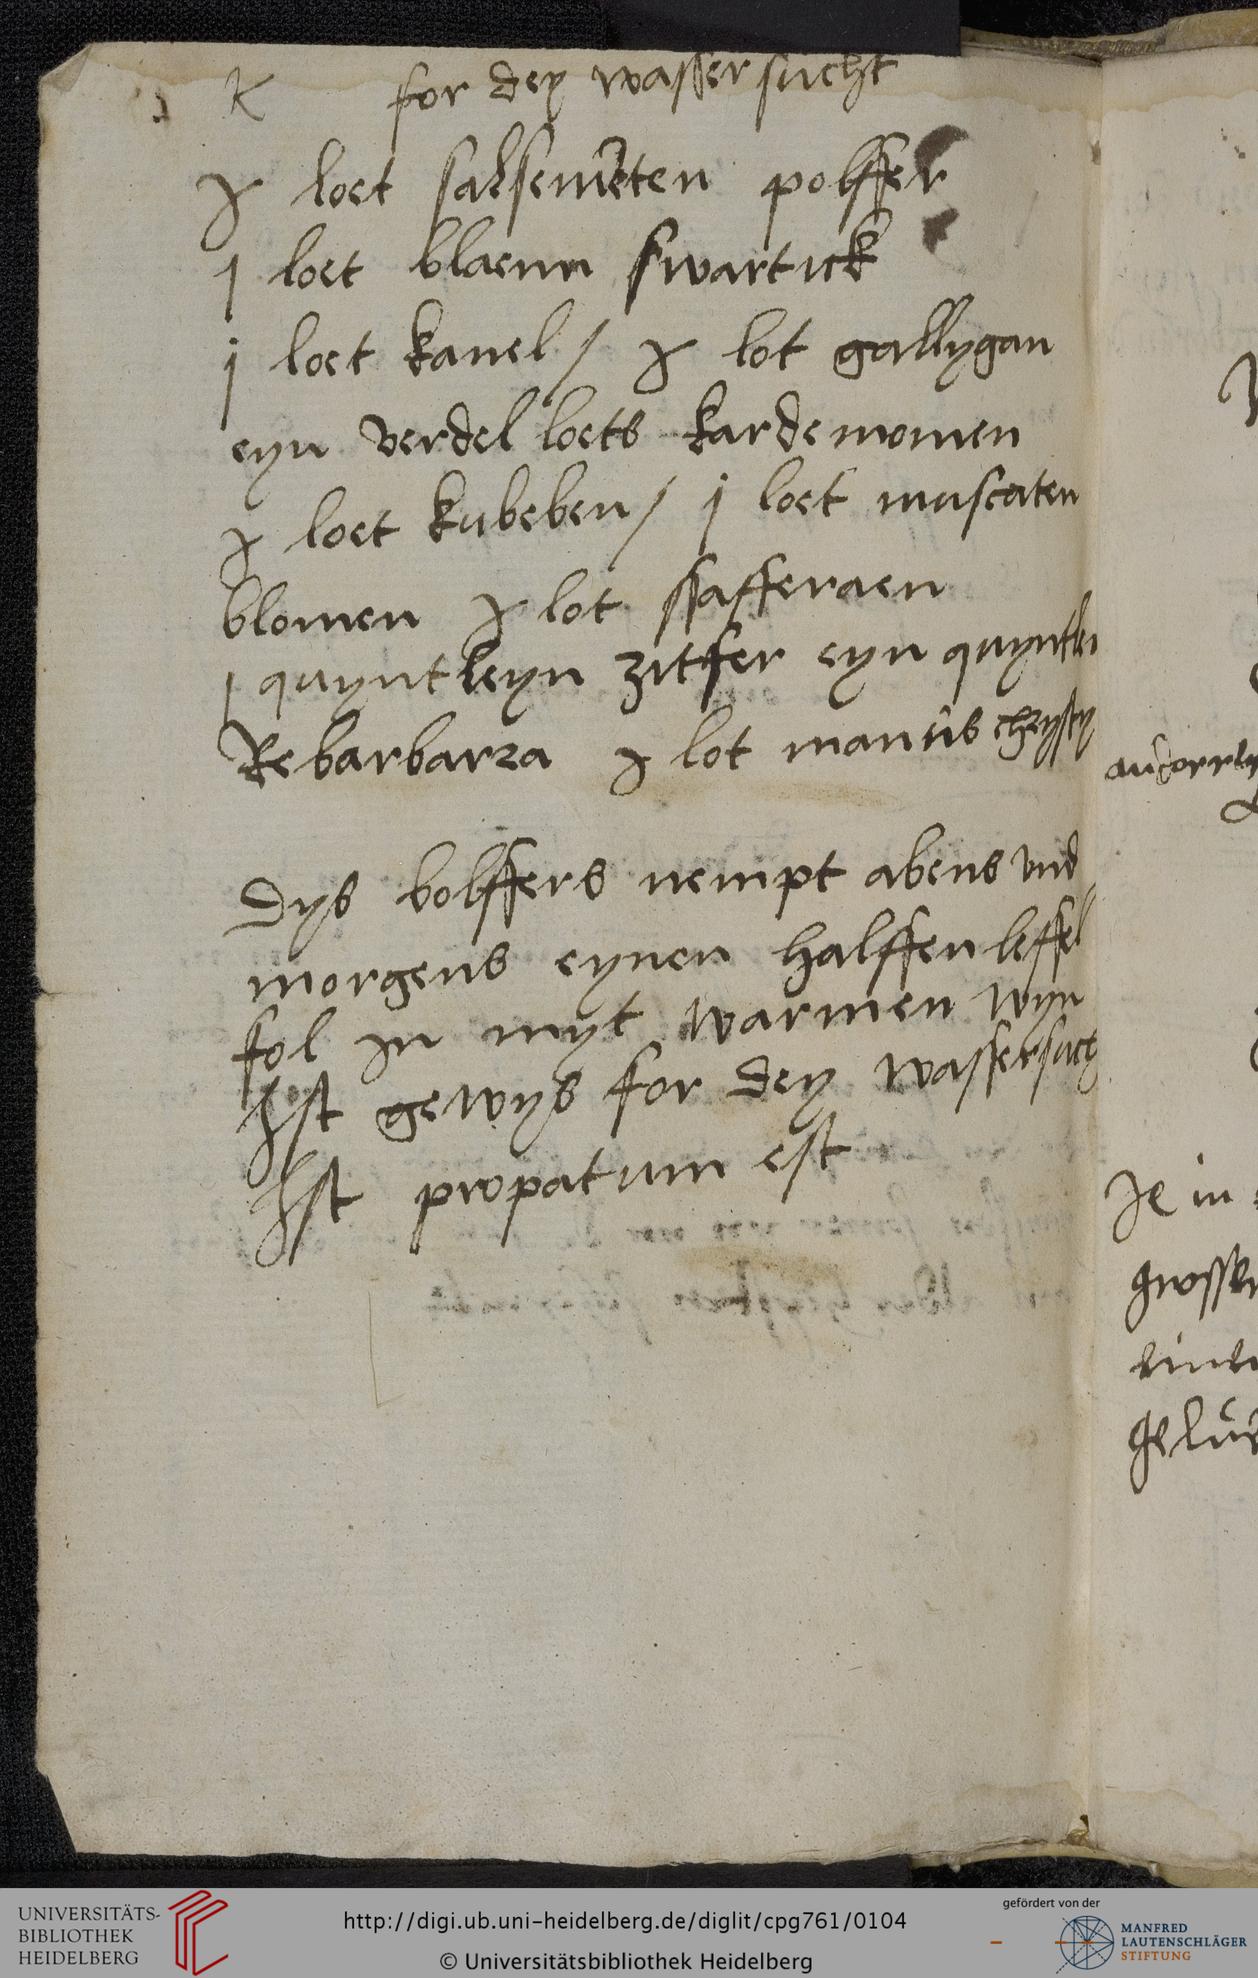 K for dey wassersucht
loet salsementen polffer
j loet blaenn swartick
j loet kanel / lot gallygan
eyn verdel loets kardemomen
loet kubeben / j loet muscaten
blomen lot ssafferaen
j quyntleyn zitfer eyn quyntlei
Rebarbarza lot manus chrysty
dyß bolffers nempt abens vnd
morgens eynen halffen leffel
fol jn myt warmen wyn
Jst gewyß for dey wassersucht
Jst propatum est
Je in
grossen
UNIVERSITÄTS-
BIBLIOTHEK
HEIDELBERG
http://digi.ub.uni-heidelberg.de/diglit/cpg761/0104
© Universitätsbibliothek Heidelberg
gefördert von der
MANFRED
LAUTENSCHLÄGER
STIFTUNG